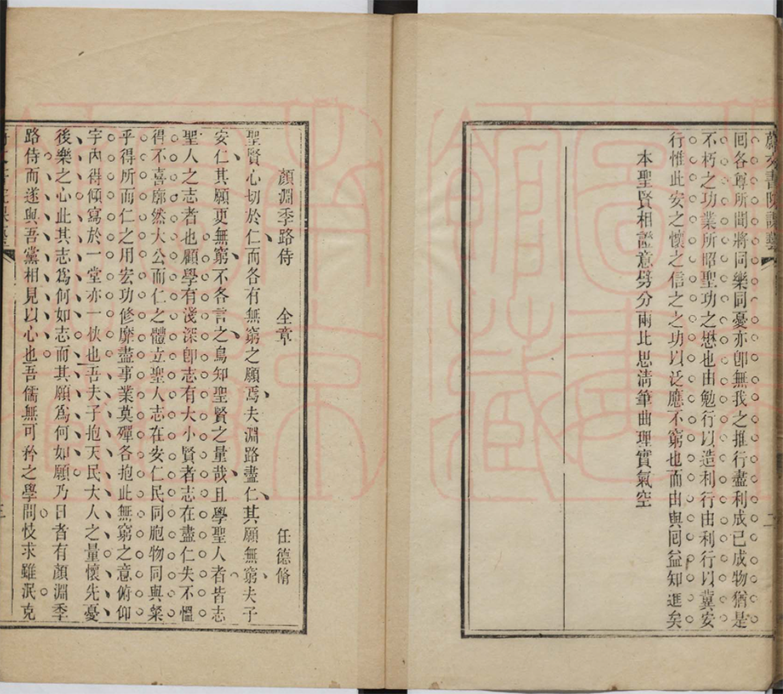 回各尊所聞將同樂同憂亦卽無我之推行盡利成已成物猶是
不朽之功業所昭聖功之懋也由勉行以造利行由利行以冀安
行惟此安之懷之信之之功以泛應不窮也而由與回益知進矣
本聖賢相證意劈分兩比思淸筆曲理實氣空
顏淵季路侍 全章 任德脩
聖賢心切於仁而各有無窮之願焉夫淵路盡仁其願無窮夫子
安仁其願更無窮不各言之烏知聖賢之量哉且學聖人者皆志
聖人之志者也顧學有淺深卽志有大小賢者志在盡仁失不慍
得不喜廓然大公而仁之體立聖人志在安仁民同胞物同與粲
乎得所而仁之用宏功修靡盡事業莫殫各抱此無窮之意俯仰
宇內得傾寫於一堂亦一快也吾夫子抱天民大人之量懷先憂
後樂之心此其志爲何如志而其願爲何如願乃日者有顏淵季
路侍而遂與吾黨相見以心也吾儒無可矜之學問忮求雖泯克
二
三